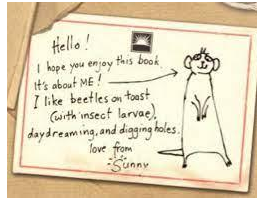 Hello!
I hope you enjoy this book.
It's about ME!
I like beetles on toast
(with insect larvae),
daydreaming, and digging holes.
love from
Sunny